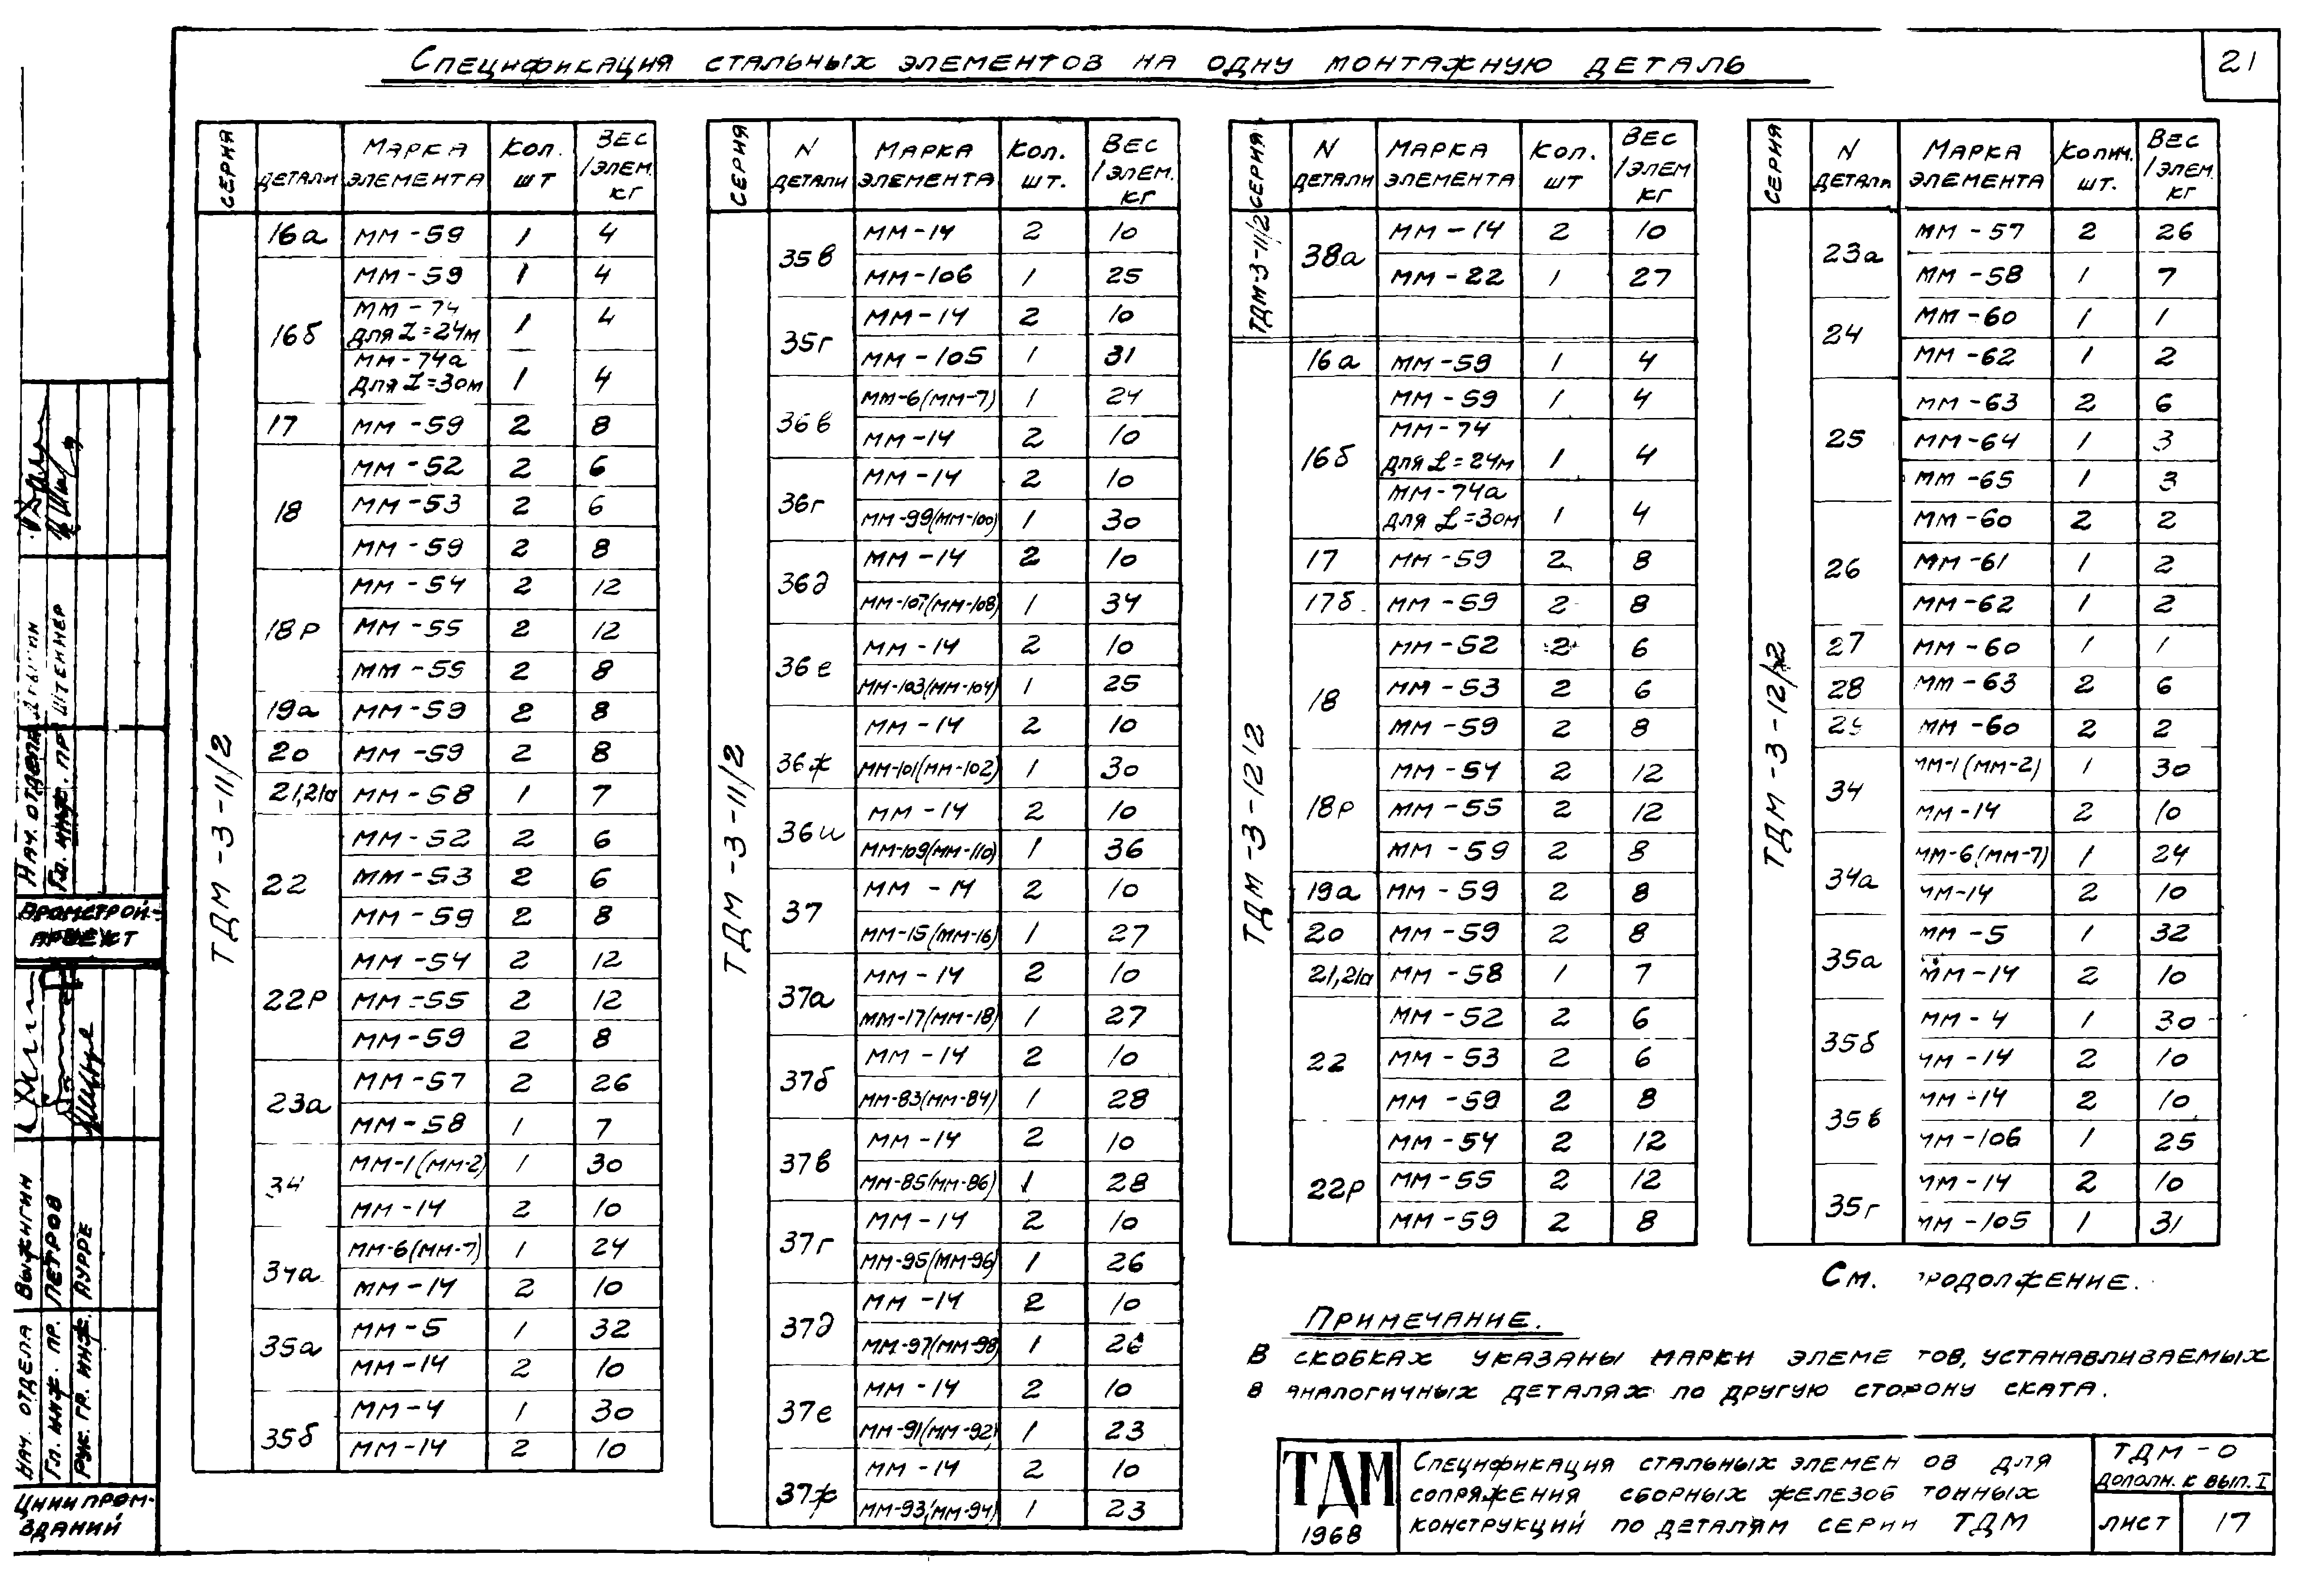 21
Спецификация стальных элементов на одну монтажную деталь
Серия | детали | Марка элемента | Кол. шт | Вес /элем. кг
ТДМ-3-11/2
16а | ММ-59 | 1 | 4
16б | ММ-59 | 1 | 4
ММ-74 для L=24м | 1 | 4
ММ-74а для L=30м | 1 | 4
17 | ММ-59 | 2 | 8
18 | ММ-52 | 2 | 6
ММ-53 | 2 | 6
ММ-59 | 2 | 8
18р | ММ-54 | 2 | 12
ММ-55 | 2 | 12
ММ-59 | 2 | 8
19а | ММ-59 | 2 | 8
20 | ММ-59 | 2 | 8
21,21а | ММ-58 | 1 | 7
22 | ММ-52 | 2 | 6
ММ-53 | 2 | 6
ММ-59 | 2 | 8
22р | ММ-54 | 2 | 12
ММ-55 | 2 | 12
ММ-59 | 2 | 8
23а | ММ-57 | 2 | 26
ММ-58 | 1 | 7
34 | ММ-1(ММ-2) | 1 | 30
ММ-14 | 2 | 10
34а | ММ-6(ММ-7) | 1 | 24
ММ-14 | 2 | 10
35а | ММ-5 | 1 | 32
ММ-14 | 2 | 10
35б | ММ-4 | 1 | 30
ММ-14 | 2 | 10
Серия | N детали | Марка элемента | Кол. шт. | Вес /элем. кг
ТДМ-3-11/2
35в | ММ-14 | 2 | 10
ММ-106 | 1 | 25
35г | ММ-14 | 2 | 10
ММ-105 | 1 | 31
36в | ММ-6(ММ-7) | 1 | 24
ММ-14 | 2 | 10
36г | ММ-14 | 2 | 10
ММ-99(ММ-100) | 1 | 30
36д | ММ-14 | 2 | 10
ММ-107(ММ-108) | 1 | 34
36е | ММ-14 | 2 | 10
ММ-103(ММ-104) | 1 | 25
36ж | ММ-14 | 2 | 10
ММ-101(ММ-102) | 1 | 30
36и | ММ-14 | 2 | 10
ММ-109(ММ-110) | 1 | 36
37 | ММ-14 | 2 | 10
ММ-15(ММ-16) | 1 | 27
37а | ММ-14 | 2 | 10
ММ-17(ММ-18) | 1 | 27
37б | ММ-14 | 2 | 10
ММ-83(ММ-84) | 1 | 28
37в | ММ-14 | 2 | 10
ММ-85(ММ-86) | 1 | 28
37г | ММ-14 | 2 | 10
ММ-95(ММ-96) | 1 | 26
37д | ММ-14 | 2 | 10
ММ-97(ММ-98) | 1 | 26
37е | ММ-14 | 2 | 10
ММ-91(ММ-92) | 1 | 23
37ж | ММ-14 | 2 | 10
ММ-93(ММ-94) | 1 | 23
Серия | N детали | Марка элемента | Кол. шт | Вес /элем кг
ТДМ-3-11/2
38а | ММ-14 | 2 | 10
ММ-22 | 1 | 27
ТДМ-3-12/2
16а | ММ-59 | 1 | 4
16б | ММ-59 | 1 | 4
ММ-74 для L=24м | 1 | 4
ММ-74а для L=30м | 1 | 4
17 | ММ-59 | 2 | 8
17б | ММ-59 | 2 | 8
18 | ММ-52 | 2 | 6
ММ-53 | 2 | 6
ММ-59 | 2 | 8
18р | ММ-54 | 2 | 12
ММ-55 | 2 | 12
ММ-59 | 2 | 8
19а | ММ-59 | 2 | 8
20 | ММ-59 | 2 | 8
21,21а | ММ-58 | 1 | 7
22 | ММ-52 | 2 | 6
ММ-53 | 2 | 6
ММ-59 | 2 | 8
22р | ММ-54 | 2 | 12
ММ-55 | 2 | 12
ММ-59 | 2 | 8
Серия | N детали | Марка элемента | Колич. шт. | Вес /элем. кг
ТДМ-3-12/2
23а | ММ-57 | 2 | 26
ММ-58 | 1 | 7
24 | ММ-60 | 1 | 1
ММ-62 | 1 | 2
25 | ММ-63 | 2 | 6
ММ-64 | 1 | 3
ММ-65 | 1 | 3
26 | ММ-60 | 2 | 2
ММ-61 | 1 | 2
ММ-62 | 1 | 2
27 | ММ-60 | 1 | 1
28 | ММ-63 | 2 | 6
29 | ММ-60 | 2 | 2
34 | ММ-1(ММ-2) | 1 | 30
ММ-14 | 2 | 10
34а | ММ-6(ММ-7) | 1 | 24
ММ-14 | 2 | 10
35а | ММ-5 | 1 | 32
ММ-14 | 2 | 10
35б | ММ-4 | 1 | 30
ММ-14 | 2 | 10
35в | ММ-14 | 2 | 10
ММ-106 | 1 | 25
35г | ММ-14 | 2 | 10
ММ-105 | 1 | 31
См. продолжение.
Примечание.
В скобках указаны марки элементов, устанавливаемых
в аналогичных деталях по другую сторону ската.
ТДМ
1968
Спецификация стальных элементов для
сопряжения сборных железобетонных
конструкций по деталям серии ТДМ
ТДМ-0
дополн. к вып. I
лист 17
Нач. отдела
Гл. инж. пр. Штейнер
Промстрой-
проект
Нач. отдела Выжигин
Гл. инж. пр. Петров
Рук. гр. инж. Аурре
ЦНИИпром-
зданий